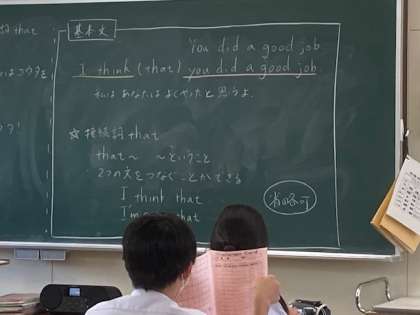 that
基本文
You did a good job
I think (that) you did a good job.
私はあなたはよくやったと思うよ。
☆ 接続詞 that
that〜 〜ということ
2つの文をつなぐことができる
I think that
省略可
I'm that